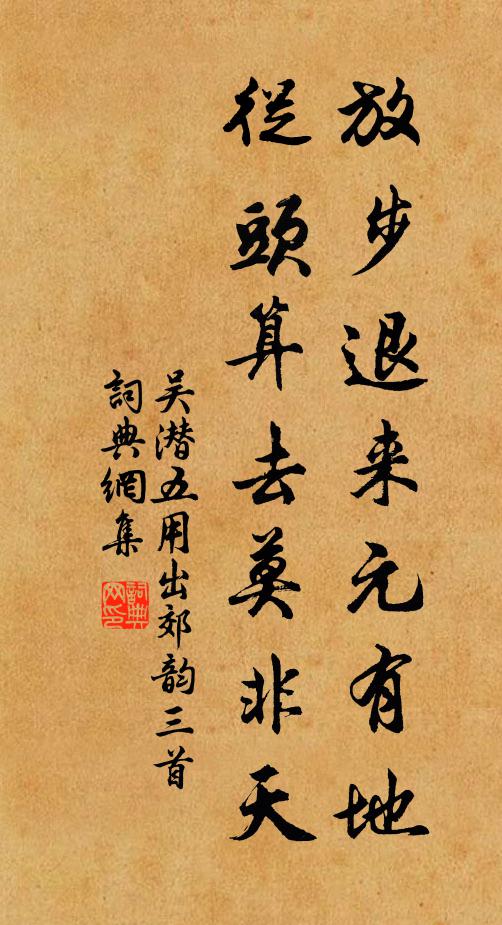 放步退来元有地
從頭算去莫非天
吴潜五用出郊韵三首
詞典網集
詞典网印